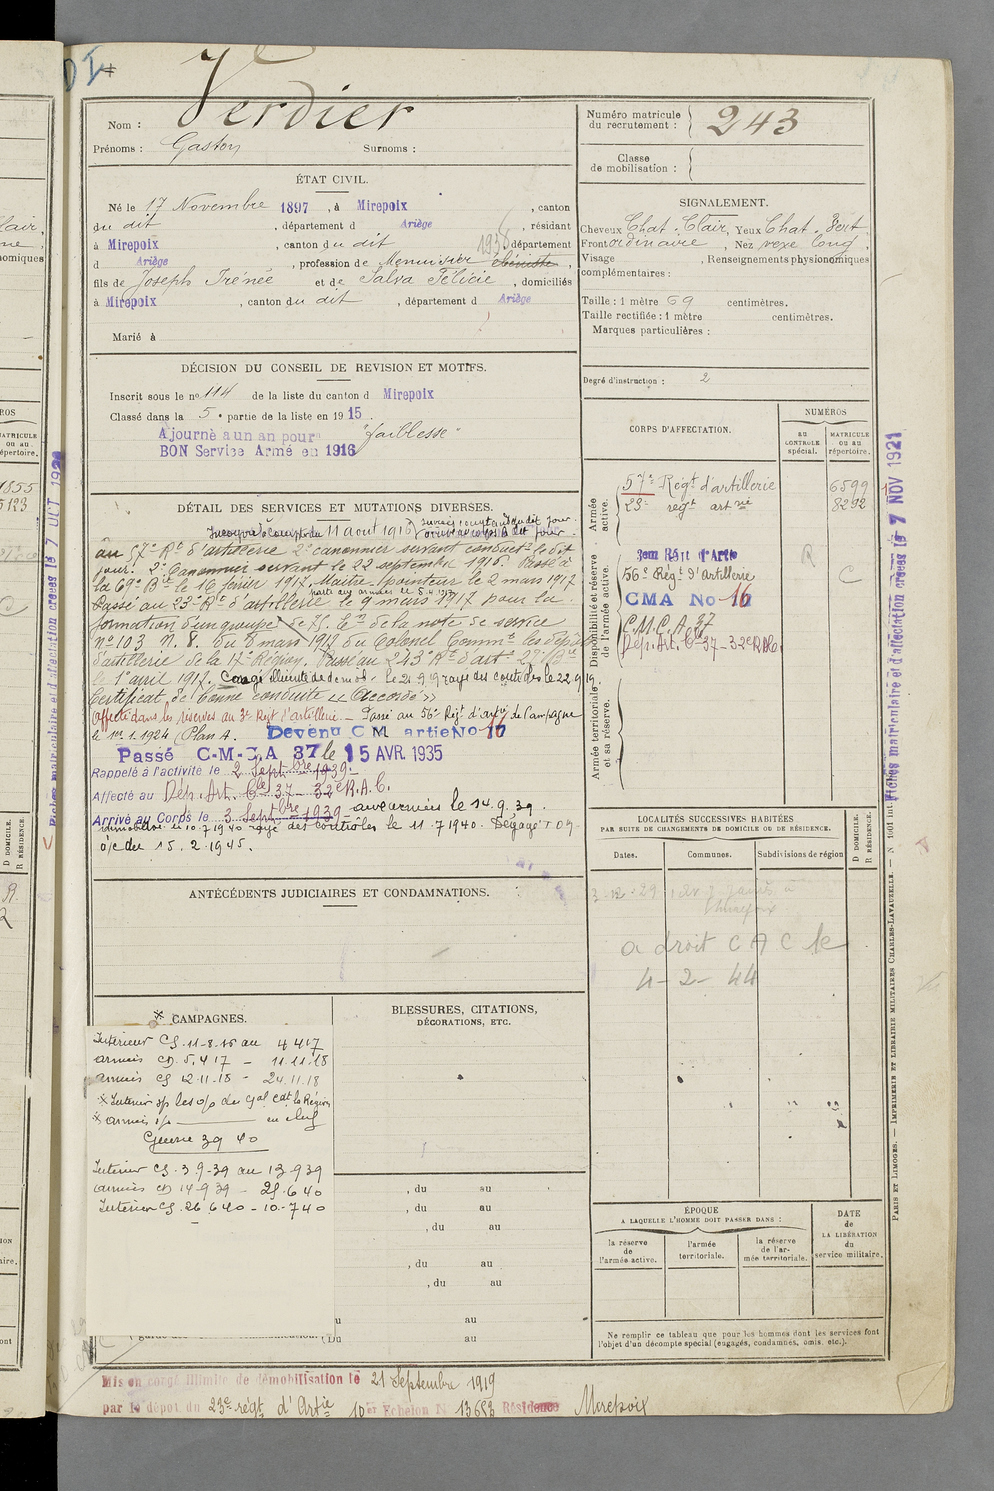 Nom : Verdier
Prénoms : Gaston Surnoms :
Numéro matricule du recrutement : 243
Classe de mobilisation :
ÉTAT CIVIL.
Né le 17 Novembre 1897, à Mirepoix, canton
du dit, département d Ariège, résidant
à Mirepoix, canton du dit 1938 département
d Ariège, profession de Menuisier ébéniste,
fils de Joseph Irénée et de Salva Félicie, domiciliés
à Mirepoix, canton du dit, département d Ariège
Marié à
SIGNALEMENT.
Cheveux Chat. Clair, Yeux Chat. Vert
Front ordinaire, Nez vexe long.
Visage , Renseignements physionomiques
complémentaires :
Taille : 1 mètre 69 centimètres.
Taille rectifiée : 1 mètre centimètres.
Marques particulières :
Degré d'instruction : 2
DÉCISION DU CONSEIL DE REVISION ET MOTIFS.
Inscrit sous le n° 114 de la liste du canton d Mirepoix
Classé dans la 5e partie de la liste en 1915.
Ajourné a un an pour "faiblesse"
BON Service Armé en 1916
DÉTAIL DES SERVICES ET MUTATIONS DIVERSES.
Incorporé à compter du 11 aout 1916
au 57e Rt d'artillerie 2e canonnier servant conduct le dit
jour. 2e Canonnier servant le 22 septembre 1916. Passé à
la 69e Bie le 16 février 1917, Maitre-pointeur le 2 mars 1917
parti aux armées le 5.4.1917
Passé au 23e Rt d'artillerie le 9 mars 1917 pour la
formation d'un groupe de 75. Ton de la note de service
No 103 N. 8. du 8 mars 1917 du Colonel Commt les dépôts
d'artillerie de la 17e Région. Passé au 243e Rt d'art 29e Bie
le 1er avril 1917. Congé illimité de démob. le 21.9.19 rayé des contrôles le 22.9.19.
Certificat de bonne conduite « Accordé »
affecté dans les réserves au 3e Régt d'artillerie - Passé au 56e Régt d'artie de Campagne
le 1er.1.1924 (Plan A. Devenu C M artie No 17
Passé C-M-C.A 37 le 15 AVR. 1935
Rappelé à l'activité le 2 Septbre 1939-
Affecté au Dép. Art. Cie 37 - 32e R.A.C.
Arrivé au Corps le 3 Septbre 1939 - aux armées le 14.9.39.
démobilisé le 10.7.1940 rayé des contrôles le 11.7.1940. Dégagé T O M
o/c du 15.2.1945.
CORPS D'AFFECTATION.
NUMÉROS
AU CONTROLE spécial.
MATRICULE ou au répertoire.
Armée active.
57e Régt d'artillerie 6599
23e regt artie 8292
Disponibilité et réserve de l'armée active.
3em Régt d'Artie R
56e Régt d'Artillerie C
CMA No 16
C.M.C.A. 37
Dép. Art. Cie 37 - 32e RAC.
Armée territoriale et sa réserve.
LOCALITÉS SUCCESSIVES HABITÉES
PAR SUITE DE CHANGEMENTS DE DOMICILE OU DE RÉSIDENCE.
Dates. Communes. Subdivisions de région
D DOMICILE. R RÉSIDENCE.
3-12-29
Mirepoix
a droit C A C le
4-2-44
ANTÉCÉDENTS JUDICIAIRES ET CONDAMNATIONS.
CAMPAGNES.
Intérieur CS. 11-8-16 au 4 4 17
armées CD. 5.4 17 - 11.11.18
armées CS 12.11.18 - 24.11.18
Guerre 39 40
Intérieur CS. 3.9.39 au 13.9.39
armées CD 14.9.39 - 25.6.40
Intérieur CS. 26.6.40 - 10.7.40
BLESSURES, CITATIONS,
DÉCORATIONS, ETC.
, du au
, du au
, du au
, du au
, du au
u au
(Du au
ÉPOQUE
A LAQUELLE L'HOMME DOIT PASSER DANS :
la réserve de l'armée active.
l'armée territoriale.
la réserve de l'armée territoriale.
DATE de LA LIBÉRATION du service militaire.
Ne remplir ce tableau que pour les hommes dont les services font
l'objet d'un décompte spécial (engagés, condamnés, omis, etc.).
Mis en congé illimité de démobilisation le 21 Septembre 1919
par le dépôt du 23e regt d'Artie 10er Echelon N 13652 Résidence Mirepoix
Fiches matriculaire et d'affectation créées le 7 NOV 1921
PARIS ET LIMOGES. — IMPRIMERIE ET LIBRAIRIE MILITAIRES CHARLES-LAVAUZELLE. — N° 1001 int